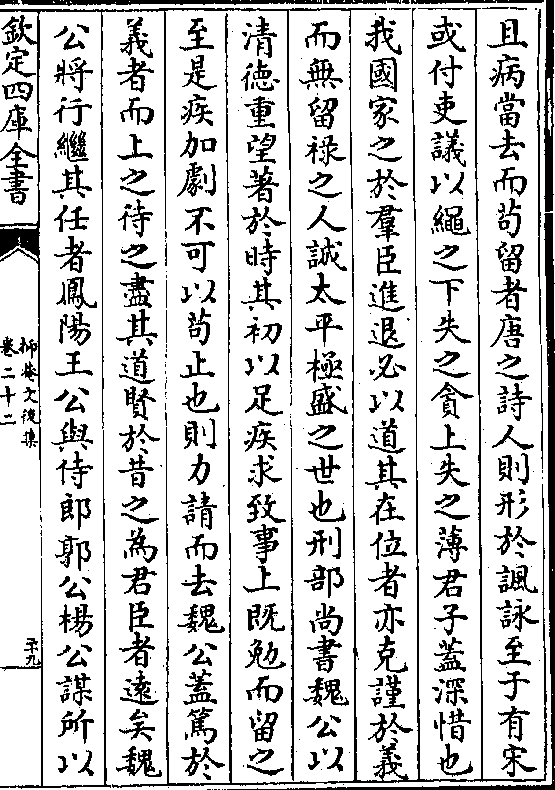 且病當去而苟留者唐之詩人則形於諷詠至于有宋
或付吏議以繩之下失之貪上失之薄君子蓋深惜也
我國家之於羣臣進退必以道其在位者亦克謹於義
而無留祿之人誠太平極盛之世也刑部尚書魏公以
清德重望著於時其初以足疾求致事上既勉而留之
至是疾加劇不可以苟止也則力請而去魏公蓋篤於
義者而上之待之盡其道賢於昔之為君臣者遠矣魏
公將行繼其任者鳳陽王公與侍郎郭公楊公謀所以
欽定四庫全書
抑菴文後集
卷二十二
五十九